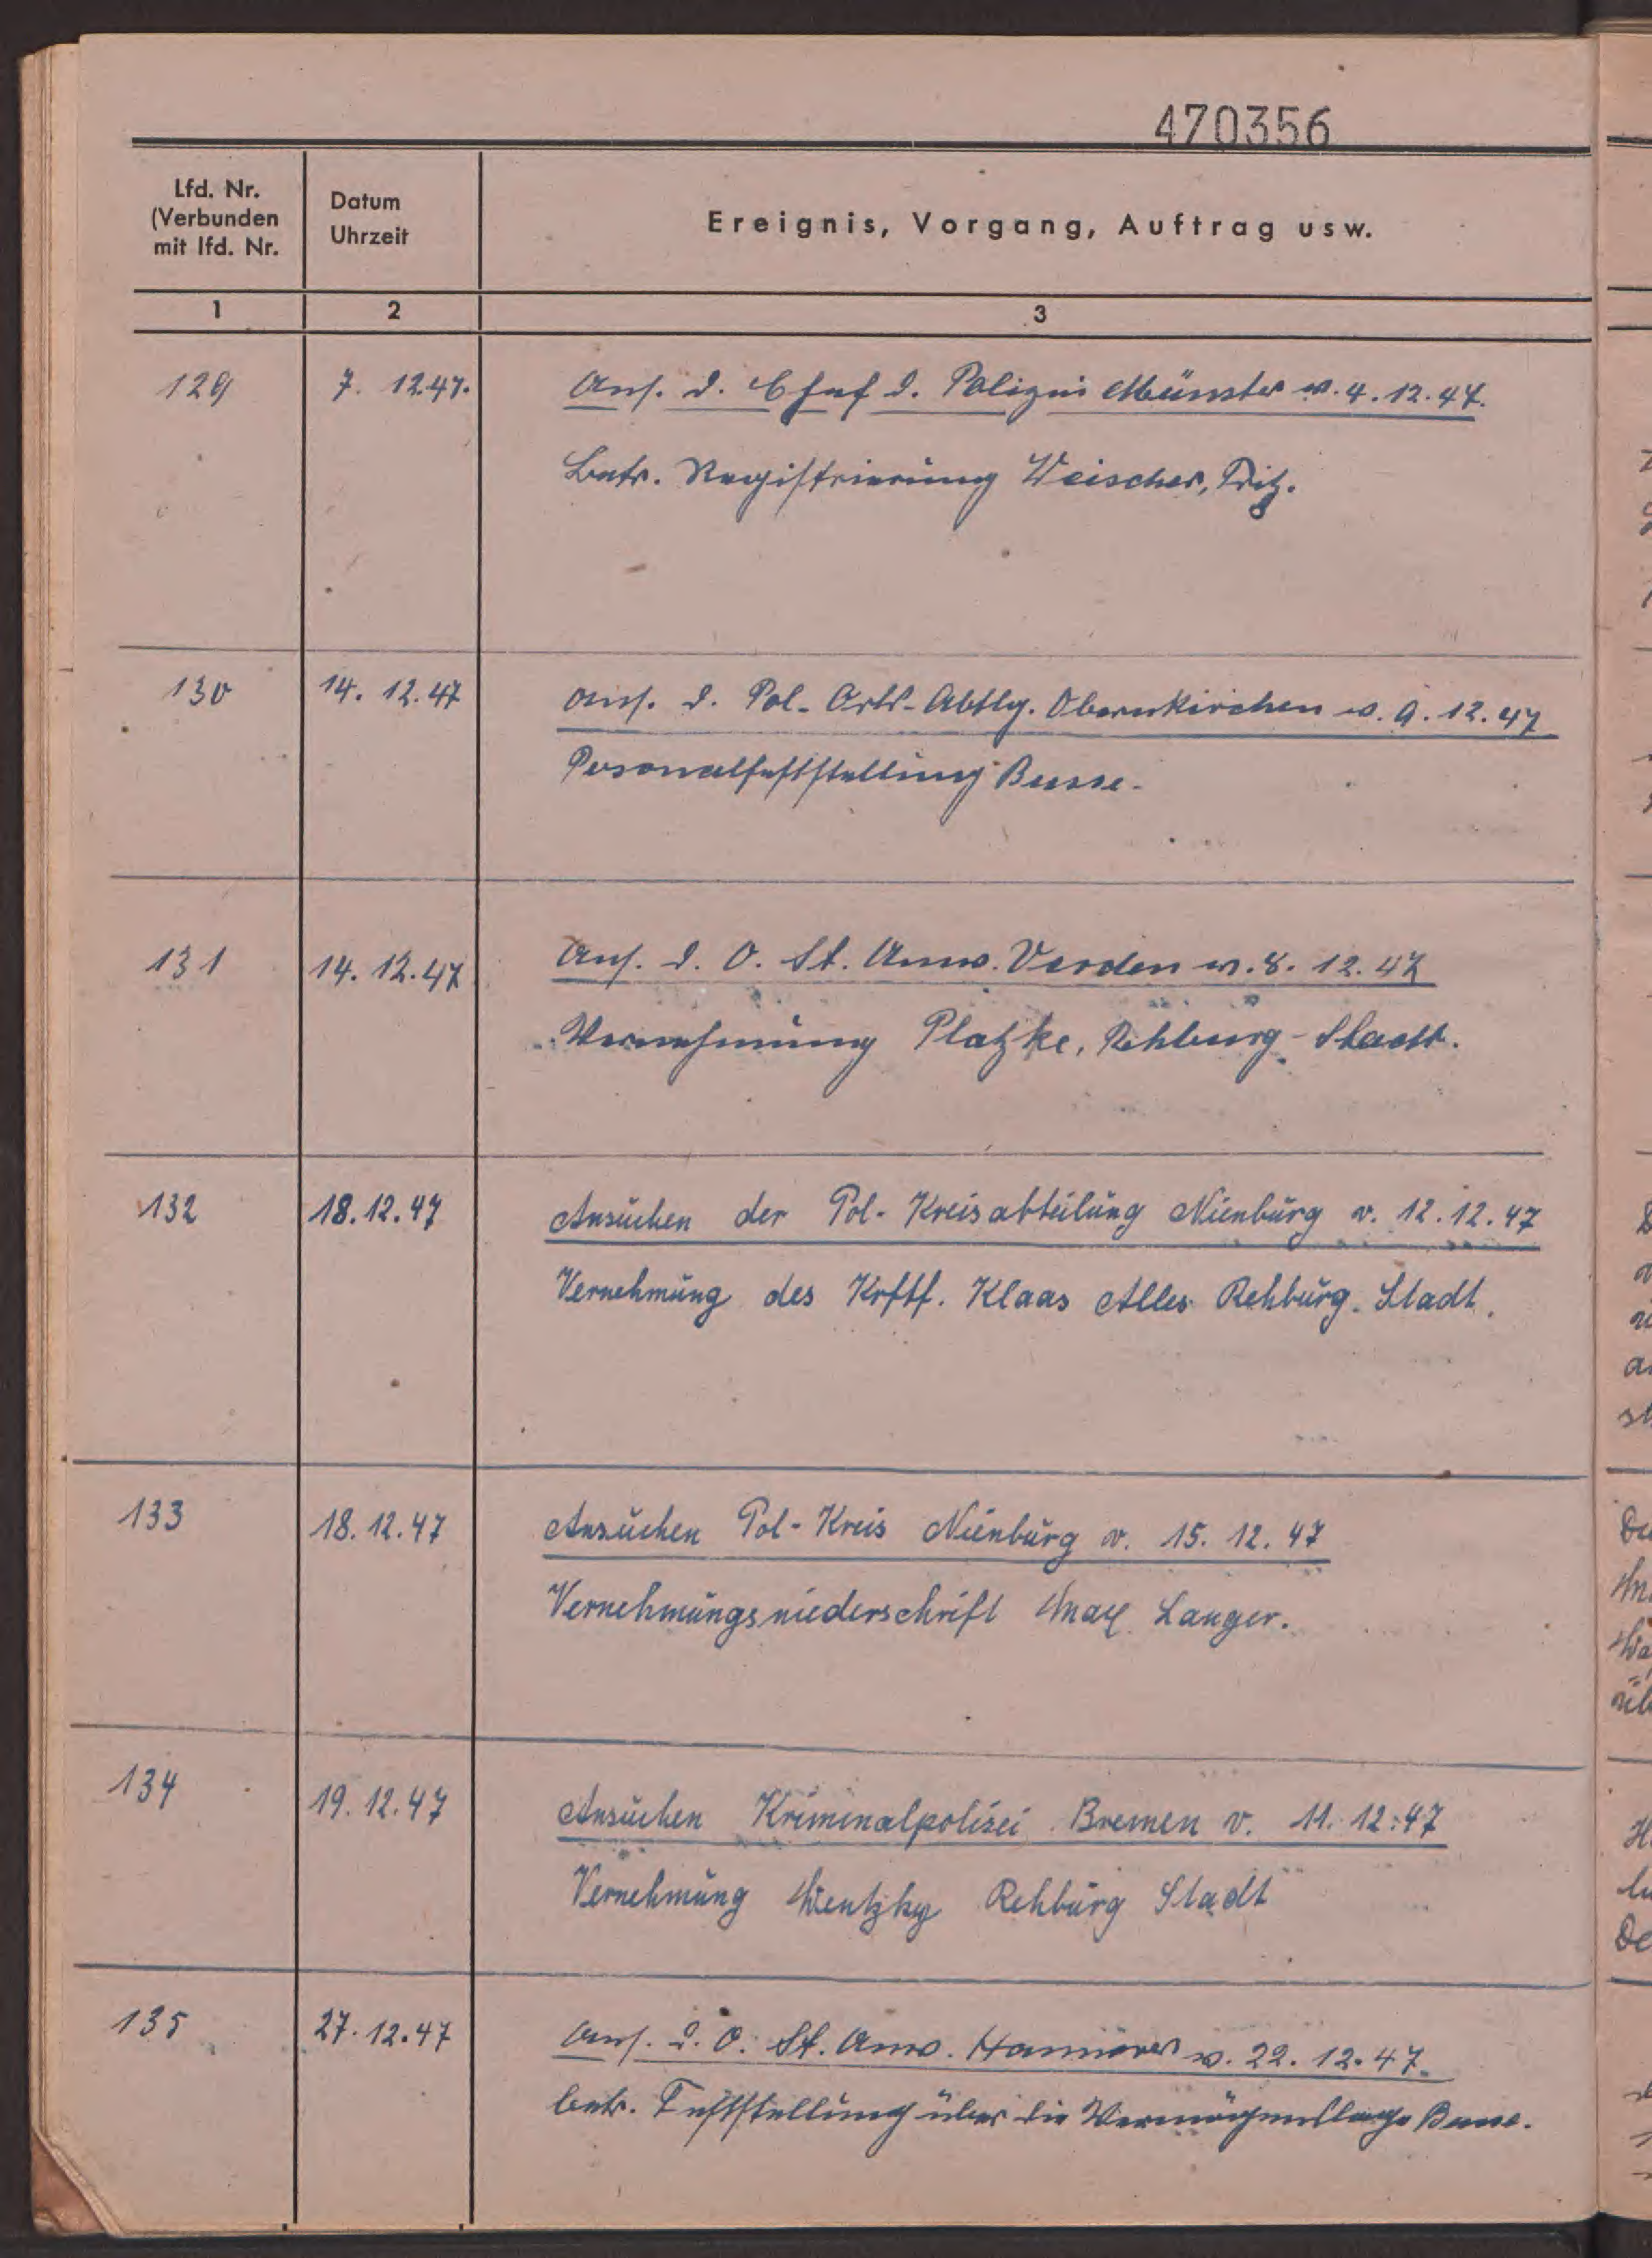 470356
Lfd. Nr.
(Verbunden
mit lfd. Nr.
Datum
Uhrzeit
Ereignis, Vorgang, Auftrag usw.
1 2 3
129 7. 12.47. Ans. d. Chef d. Polizei Münster v. 4.12.47.
Betr. Registrierung Weischer, Fritz.
130 14. 12.47 Ans. d. Pol.-Orts-Abtlg. Obernkirchen v. 9.12.47
Personalfeststellung Busse.
131 14. 12.47 Ans. d. O. St. Anw. Verden v. 8. 12. 47
Vernehmung Platzke, Rehburg-Stadt.
132 18.12.47 Ansuchen der Pol-Kreisabteilung Nienburg v. 12.12.47
Vernehmung des Krftf. Klaas Alles Rehburg. Stadt.
133 18.12.47 Ansuchen Pol-Kreis Nienburg v. 15. 12. 47
Vernehmungsniederschrift Max Langer.
134 19.12.47 Ansuchen Kriminalpolizei Bremen v. 11. 12.47
Vernehmung Wentzky Rehburg Stadt
135 27.12.47 Ans. d. O. St. Anw. Hannover v. 22. 12. 47.
betr. Feststellung über die Vermögenslage Busse.